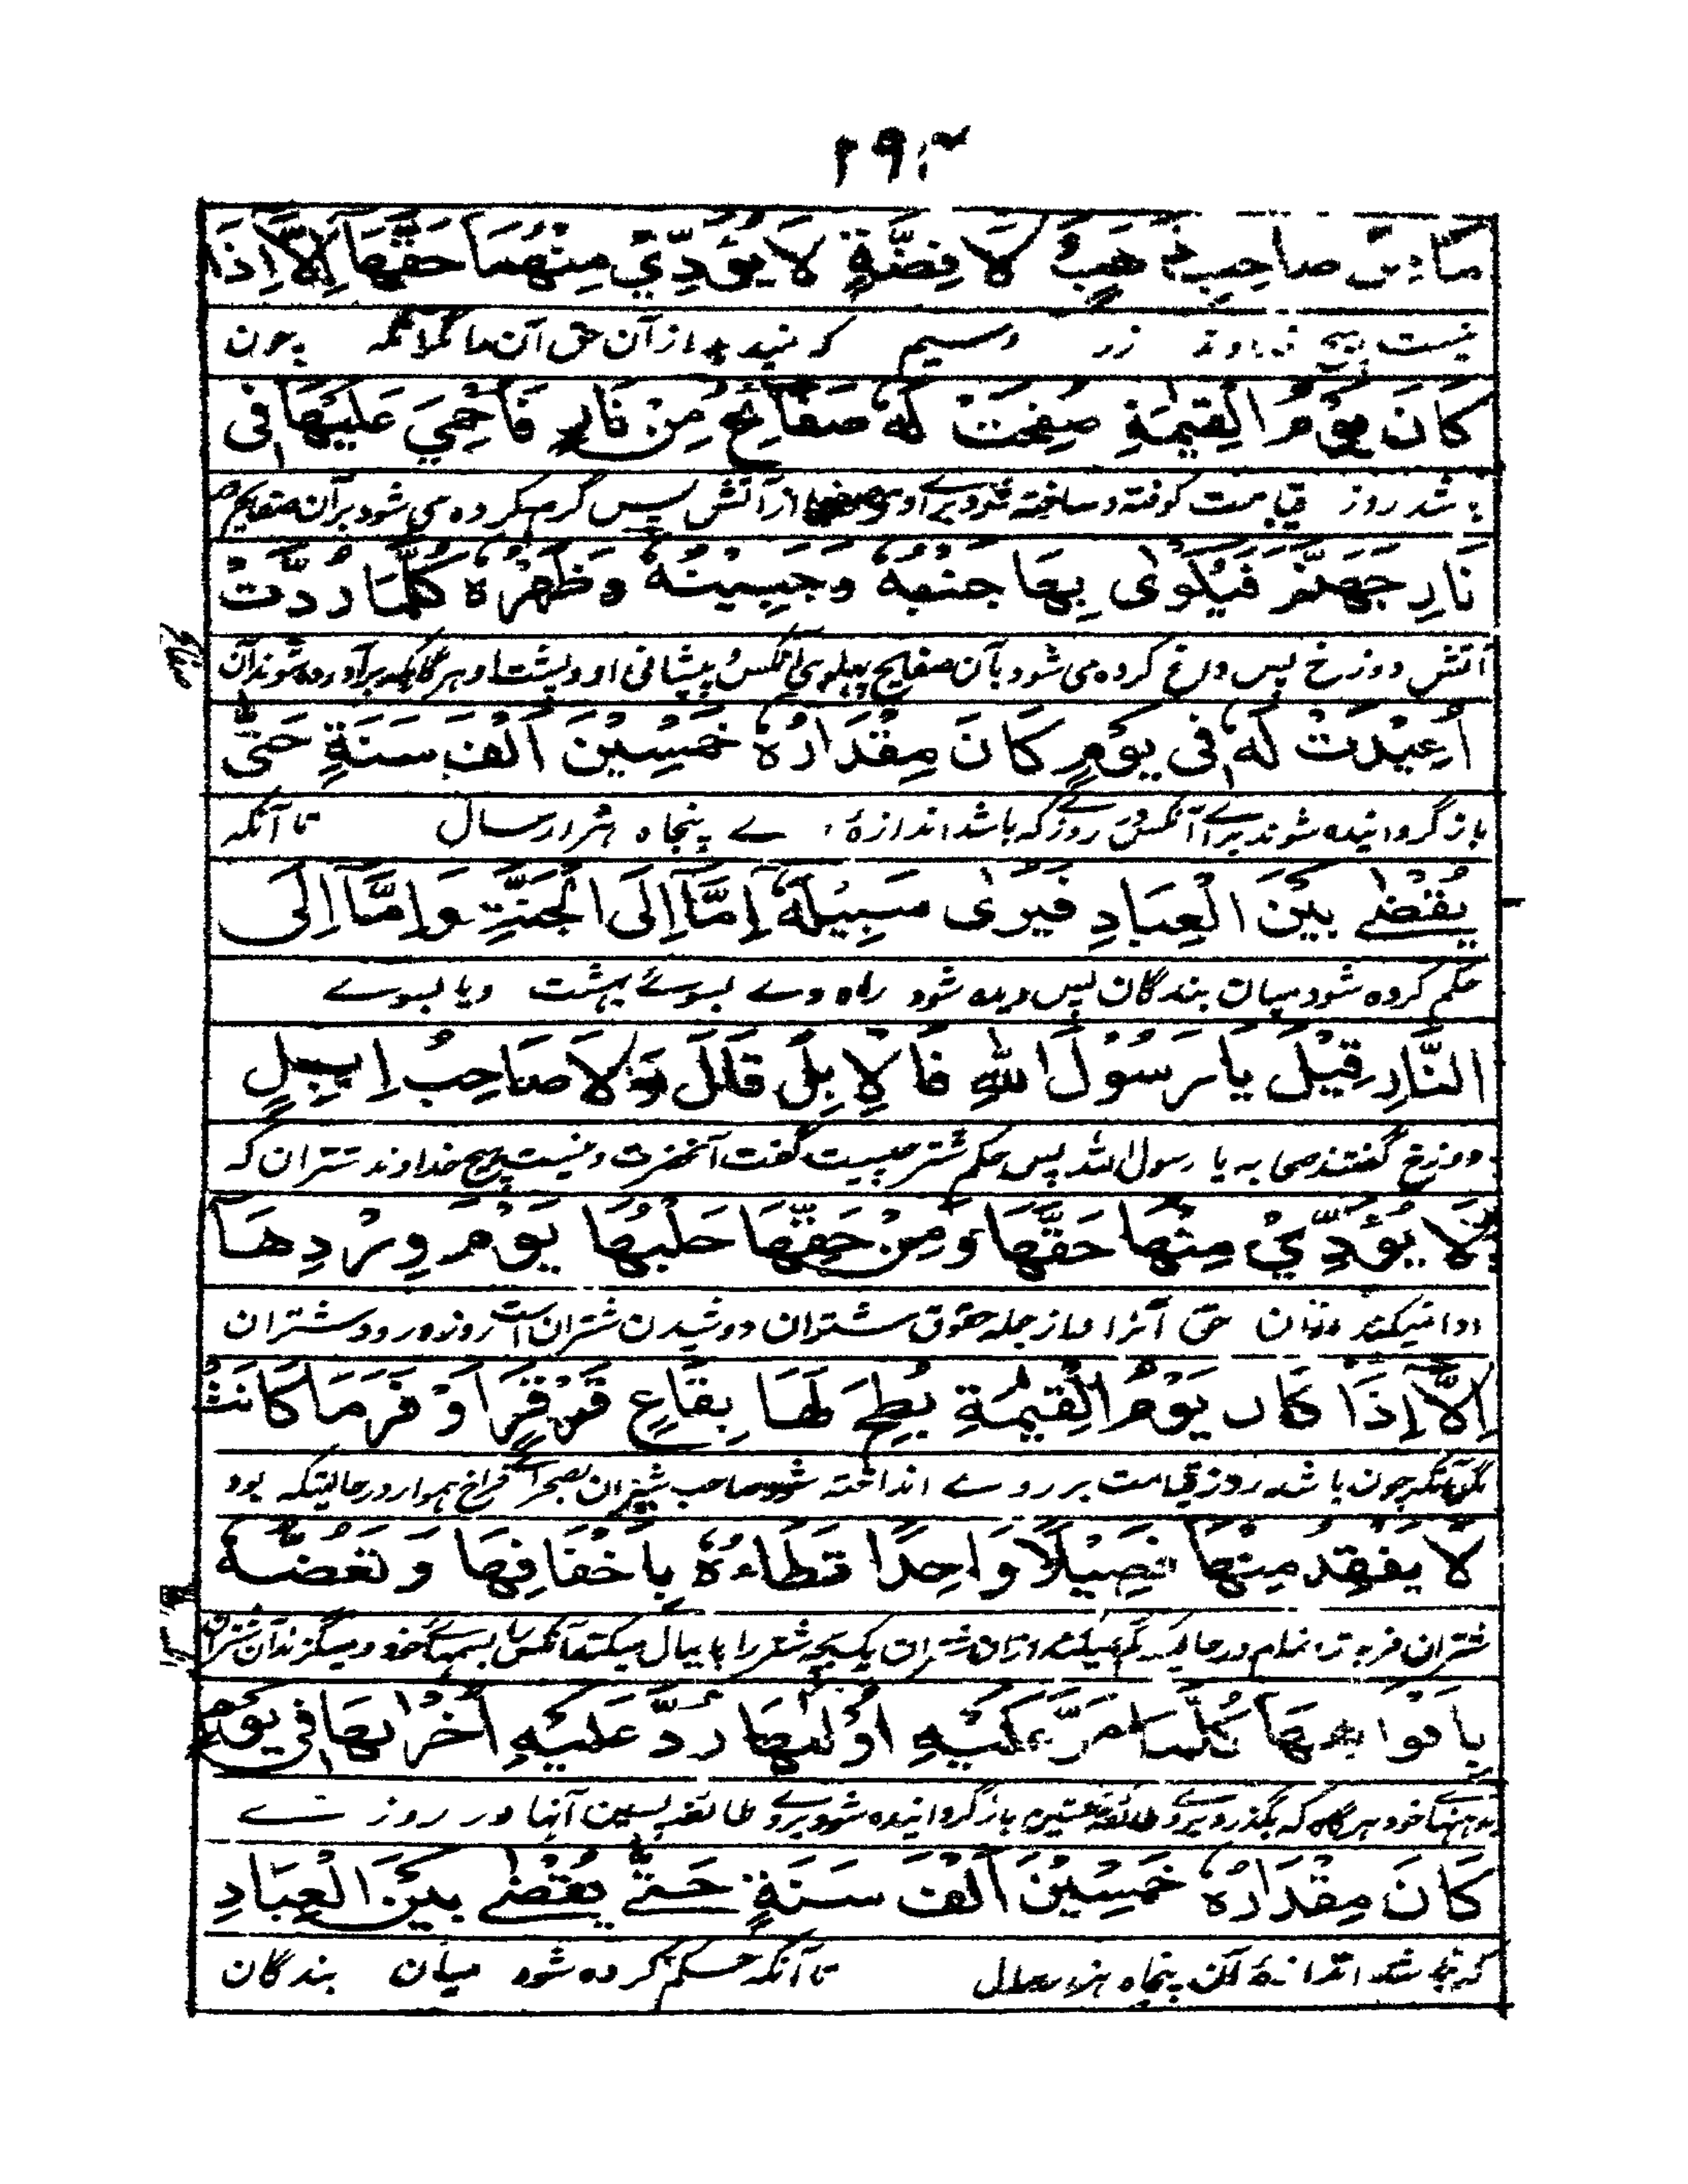 ۲۹۴
مَا مِن صَاحِبِ ذَهَبٍ وَلَا فِضَّةٍ لَا يُؤَدِّيْ مِنْهُمَا حَقَّهَا إِلَّا إِذَا
نیست هیچ خداوند زر وسیم که نمیدهد از آن حق آن مگر آنکه چون
كَانَ يَوْمُ الْقِيٰمَةِ صُفِحَتْ لَهٗ صَفَائِحُ مِنْ نَارٍ فَأُحْمِيَ عَلَيْهَا فِي
باشد روز قیامت کوفته و ساخته شود برای او از آتش پس گرم کرده می شود بر آن صفایح
نَارِ جَهَنَّمَ فَيُكْوٰى بِهَا جَنْبُهٗ وَجَبِيْنُهٗ وَظَهْرُهٗ كُلَّمَا رُدَّتْ
آتش دوزخ پس داغ کرده می شود بآن صفایح پهلوی آنکس و پیشانی او و پشت او هرگاهیکه برآورده شوند آن
أُعِيْدَتْ لَهٗ فِي يَوْمٍ كَانَ مِقْدَارُهٗ خَمْسِيْنَ أَلْفَ سَنَةٍ حَتّٰى
باز گردانیده شوند برای آنکس در روزے که باشد اندازهٔ وے پنجاه هزار سال تا آنکه
يُقْضٰى بَيْنَ الْعِبَادِ فَيُرٰى سَبِيْلَهٗ إِمَّا إِلَى الْجَنَّةِ وَإِمَّا إِلَى
حکم کرده شود میان بندگان پس دیده شود راه وے بسوے بهشت ویا بسوے
النَّارِ قِيْلَ يَا رَسُوْلَ اللهِ فَالْإِبِلُ قَالَ وَلَا صَاحِبُ إِبِلٍ
دوزخ گفتند صحابه یا رسول الله پس حکم شتر چیست گفت آنحضرت و نیست هیچ خداوند شتران که
لَا يُؤَدِّيْ مِنْهَا حَقَّهَا وَمِنْ حَقِّهَا حَلْبُهَا يَوْمَ وِرْدِهَا
ادا نمیکند ازان حق آنرا و از جمله حقوق شتران دوشیدن شتران است روز ورود شتران
إِلَّا إِذَا كَانَ يَوْمُ الْقِيٰمَةِ بُطِحَ لَهَا بِقَاعٍ قَرْقَرٍ أَوْفَرَ مَا كَانَتْ
مگر آنکه چون باشد روز قیامت بر روے انداخته شود صاحب شتران بصحرای فراخ هموار در حالتیکه بود
لَا يَفْقِدُ مِنْهَا فَصِيْلًا وَاحِدًا تَطَاءُهٗ بِأَخْفَافِهَا وَتَعَضُّهٗ
شتران فربه تر و تمام در حالیکه گم نمیکند ازان شتران یک بچه شتر را پایمال میکنند آنکس را بسمهاے خود و میگزند آن شتران
بِأَفْوَاهِهَا كُلَّمَا مَرَّ عَلَيْهِ أُوْلٰهَا رُدَّ عَلَيْهِ أُخْرٰىهَا فِي يَوْمٍ
بدهنهاے خود هرگاه که بگذرد بروے طائفه نخستین باز گردانیده شود بروے طائفه پسین آنها در روز ے
كَانَ مِقْدَارُهٗ خَمْسِيْنَ أَلْفَ سَنَةٍ حَتّٰى يُقْضٰى بَيْنَ الْعِبَادِ
که باشد اندازهٔ آن پنجاه هزار سال تا آنکه حکم کرده شود میان بندگان